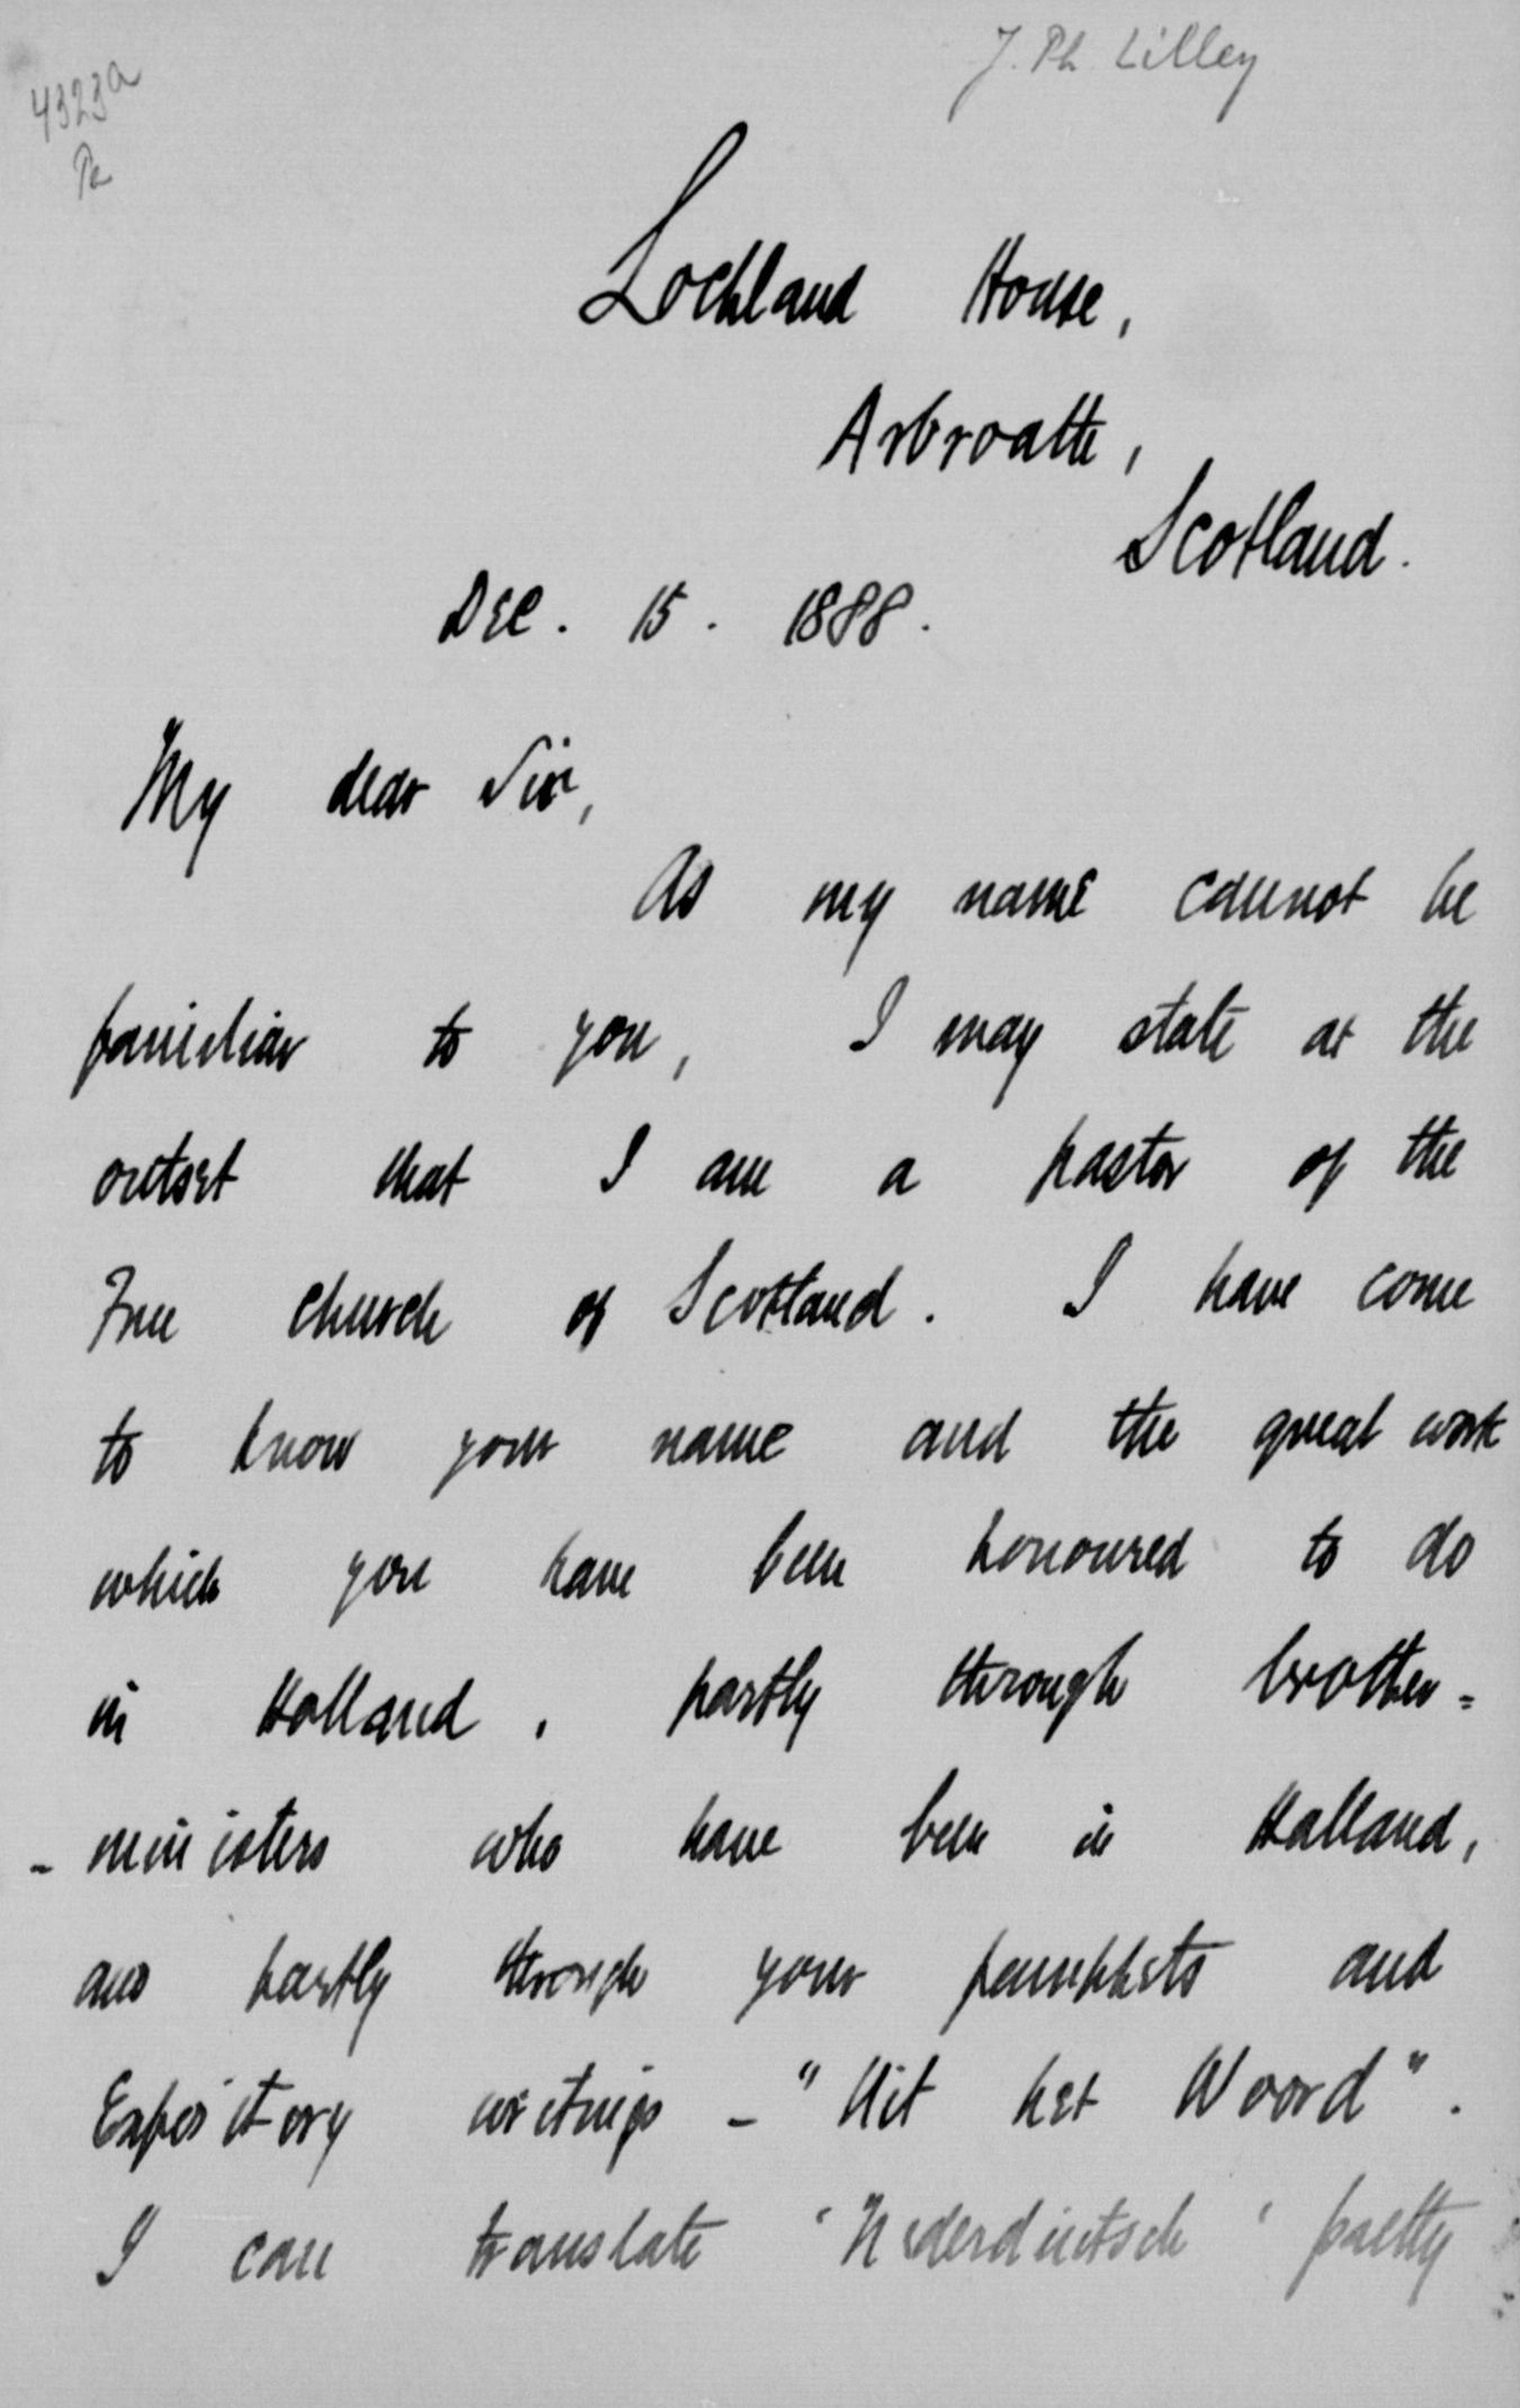 J. Ph. Lilley
4323a
Pa
Lochland House,
Arbroath,
Scotland.
Dec. 15. 1888.
My dear Sir,
As my name cannot be
familiar to you, I may state at the
outset that I am a pastor of the
Free Church of Scotland. I have come
to know your name and the great work
which you have been honoured to do
in Holland, partly through brother=
- ministers who have been in Holland,
and partly through your pamphlets and
Expository writings - "Uit het Woord".
I can translate 'Nederduitsch' pretty